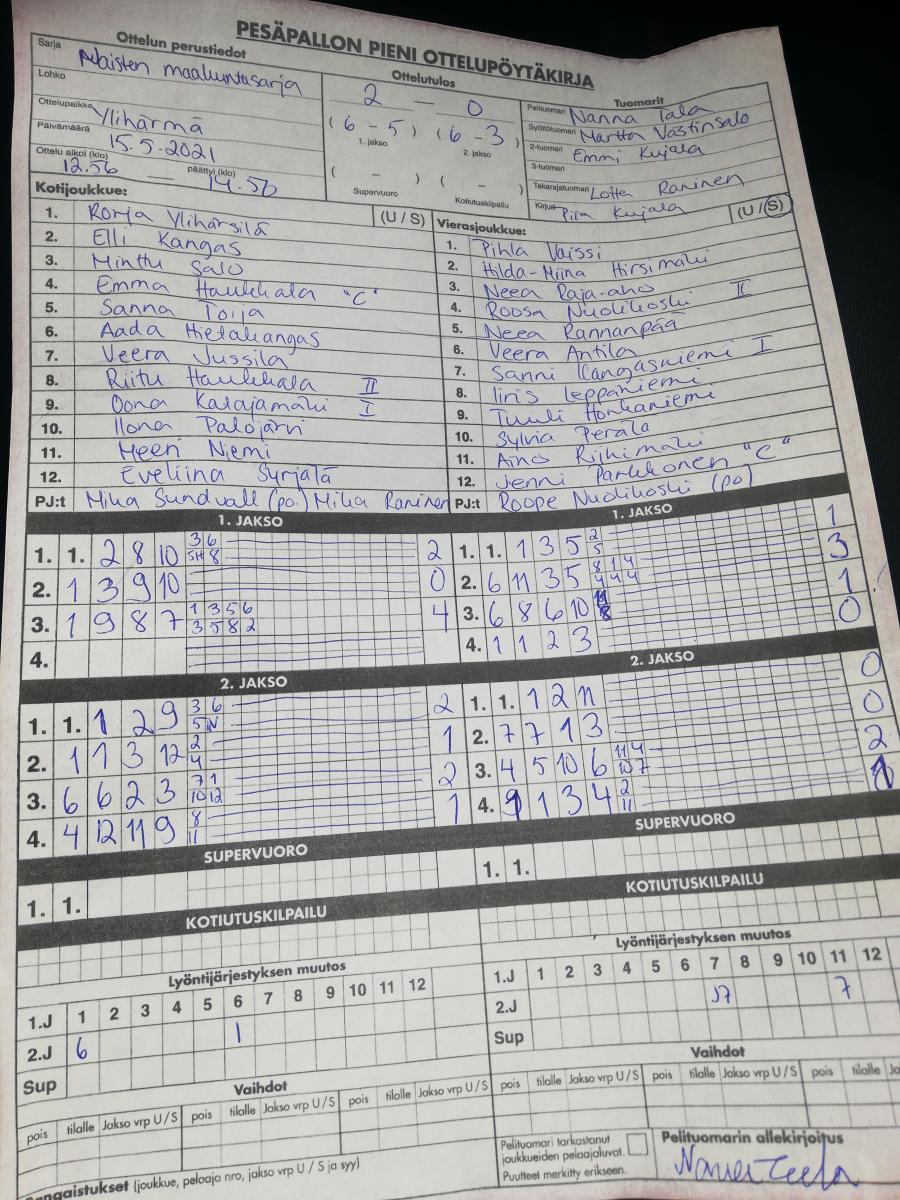 PESÄPALLON PIENI OTTELUPÖYTÄKIRJA
Ottelun perustiedot
Sarja Naisten maakuntasarja
Lohko
Ottelupaikka Ylihärmä
Päivämäärä 15.5.2021
Ottelu alkoi (klo) päättyi (klo)
12.56 — 14.56
Ottelutulos
2 — 0
(6 - 5) (6 - 3)
1. jakso 2. jakso
( - ) ( - )
Supervuoro Kotiutuskilpailu
Tuomarit
Pelituomari Nanna Tala
Syöttötuomari Martta Västinsalo
2-tuomari Emmi Kujala
3-tuomari
Takarajatuomari Lotta Raninen
Kirjuri Piia Kujala
Kotijoukkue: (U / S)
1. Ronja Ylihärsilä
2. Elli Kangas
3. Minttu Salo
4. Emma Haukkala "C"
5. Sanna Toija
6. Aada Hietakangas
7. Veera Jussila
8. Riitu Haukkala II
9. Oona Karajamäki I
10. Ilona Palojärvi
11. Meeri Niemi
12. Eveliina Syrjälä
PJ:t Mika Sundvall (po.) Mika Raninen
Vierasjoukkue: (U / S)
1. Pihla Vaissi
2. Hilda-Miina Hirsimäki
3. Neea Raja-aho
4. Roosa Nuolikoski II
5. Neea Rannanpää
6. Veera Antila
7. Sanni Kangasniemi I
8. Iiris Leppäniemi
9. Tuuli Honkaniemi
10. Sylvia Perälä
11. Aino Riihimäki
12. Jenni Parkkonen "C"
PJ:t Roope Nuolikoski (po)
1. JAKSO
1. 1. 2 8 10 3 6 2
SH 8
2. 1 3 9 10 0
3. 1 9 8 7 1 3 5 6 4
3 5 8 2
4.
1. JAKSO
1. 1. 1 3 5 2 1
5
2. 6 11 3 5 8 1 4 3
4 4 4
3. 6 8 6 10 1
8
4. 1 1 2 3 0
2. JAKSO
1. 1. 1 2 9 3 6 2
5 N
2. 1 1 3 12 2 1
4
3. 6 6 2 3 7 1 2
10 12
4. 4 12 11 9 8 1
11
2. JAKSO
1. 1. 1 2 11 0
2. 7 7 1 3 0
3. 4 5 10 6 11 4 2
10 7
4. 1 3 4 2 1
11
SUPERVUORO
1. 1.
SUPERVUORO
1. 1.
KOTIUTUSKILPAILU
KOTIUTUSKILPAILU
Lyöntijärjestyksen muutos
1.J 1 2 3 4 5 6 7 8 9 10 11 12
2.J 6 1
Sup
Lyöntijärjestyksen muutos
1.J 1 2 3 4 5 6 7 8 9 10 11 12
2.J 7
Sup
Vaihdot
pois tilalle Jakso vrp U / S pois tilalle Jakso vrp U / S pois tilalle Jakso vrp U / S
Vaihdot
pois tilalle Jakso vrp U / S pois tilalle Jakso vrp U / S pois tilalle
(joukkue, pelaaja nro, jakso vrp U / S ja syy)
Pelituomari tarkastanut
joukkueiden pelaajaluvat.
Puutteet merkitty erikseen.
Pelituomarin allekirjoitus